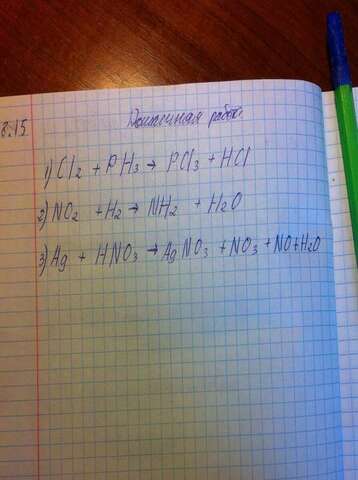 8.15
Домашняя работа
1) Cl2 + PH3 → PCl3 + HCl
2) NO2 + H2 → NH2 + H2O
3) Ag + HNO3 → AgNO3 + NO3 + NO + H2O